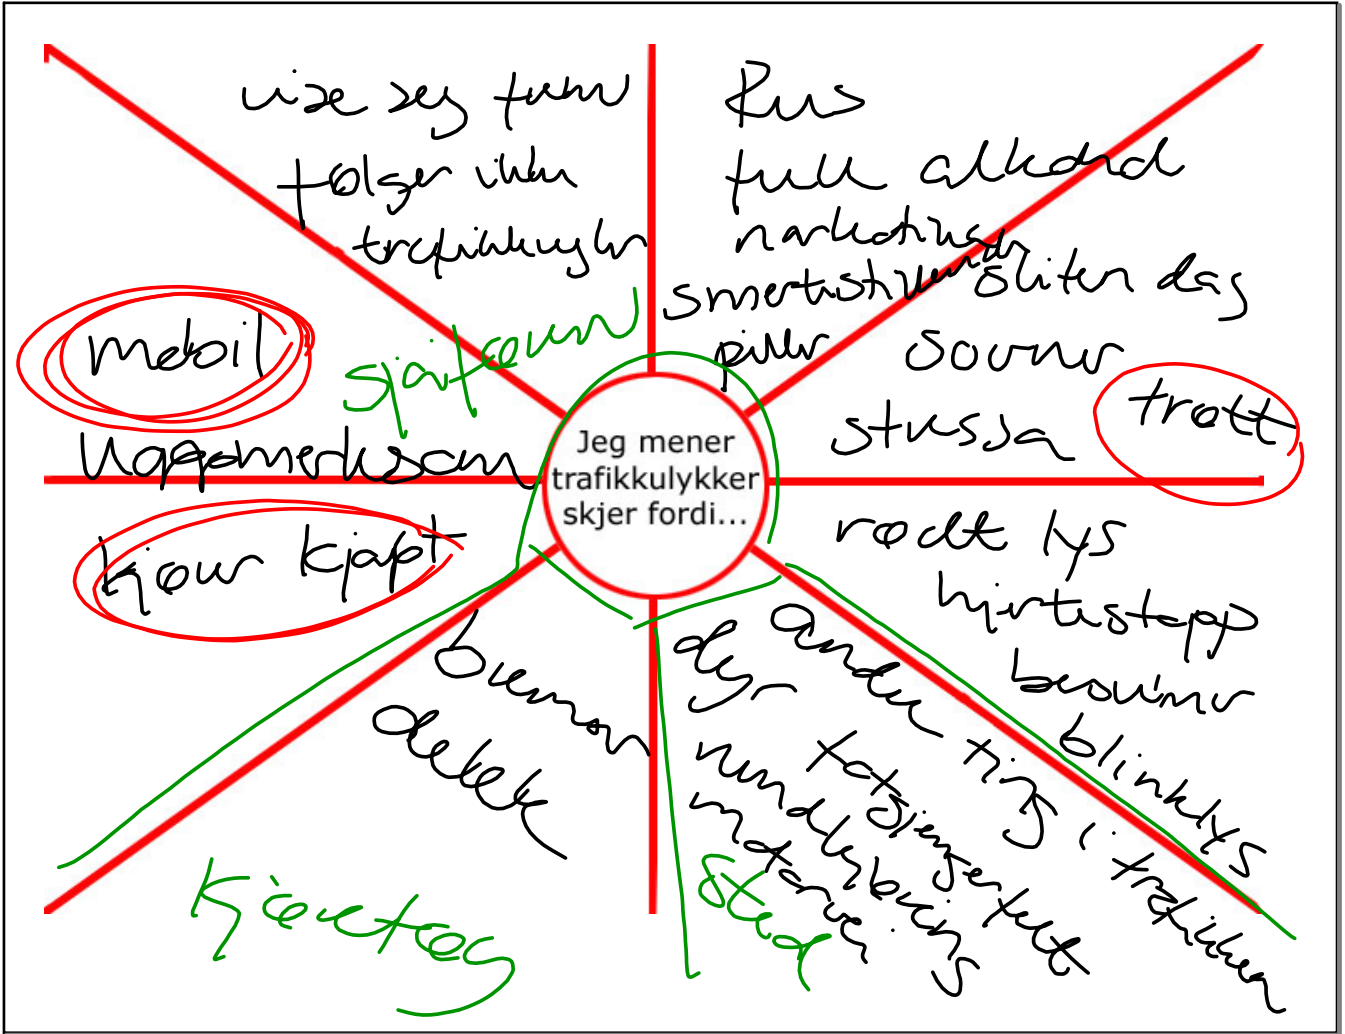 vise seg
følger ikke
trafikkregler
Rus
full alkohol
narkotika
smertestillende
piller
sliten dag
sovner
stressa
trøtt
mobil
sjåføren
Uoppmerksom
kjører kjapt
Jeg mener
trafikkulykker
skjer fordi...
rødt lys
hjertestopp
besvimer
blinklys
bremser
dekk
Kjøretøy
dyr
andre ting i trafikken
fotgjengerfelt
rundkjøring
motorvei
Sted